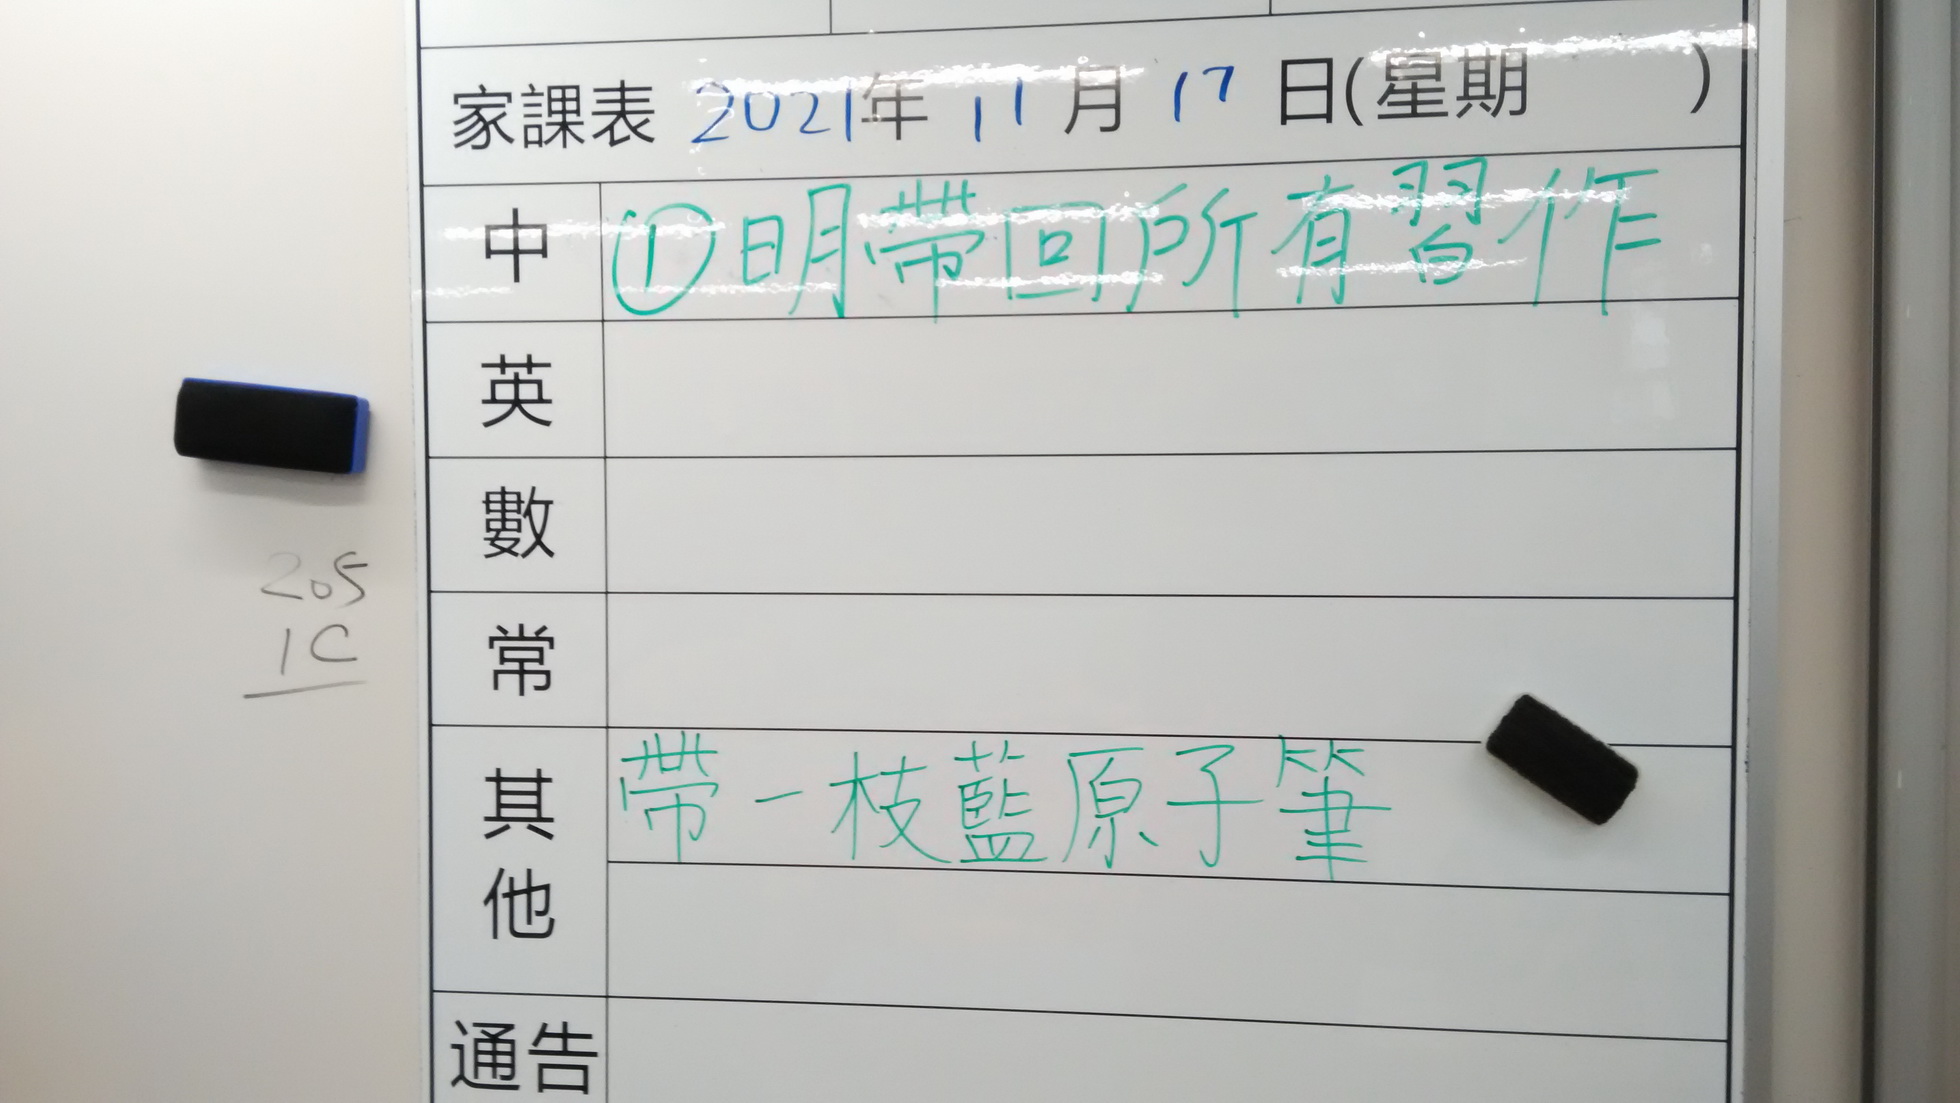 家課表 2021年 11月 17日(星期 )
中 ①明帶回所有習作
英
數
205
常
1C
其他 帶一枝藍原子筆
通告